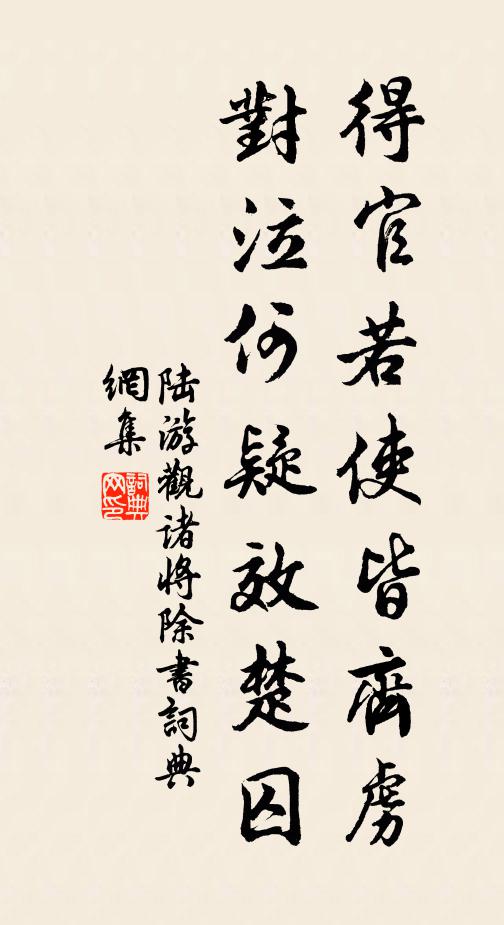 得官若使皆齊虜
對泣何疑效楚囚
陸游觀诸將除書詞典
網集
詞典
网印